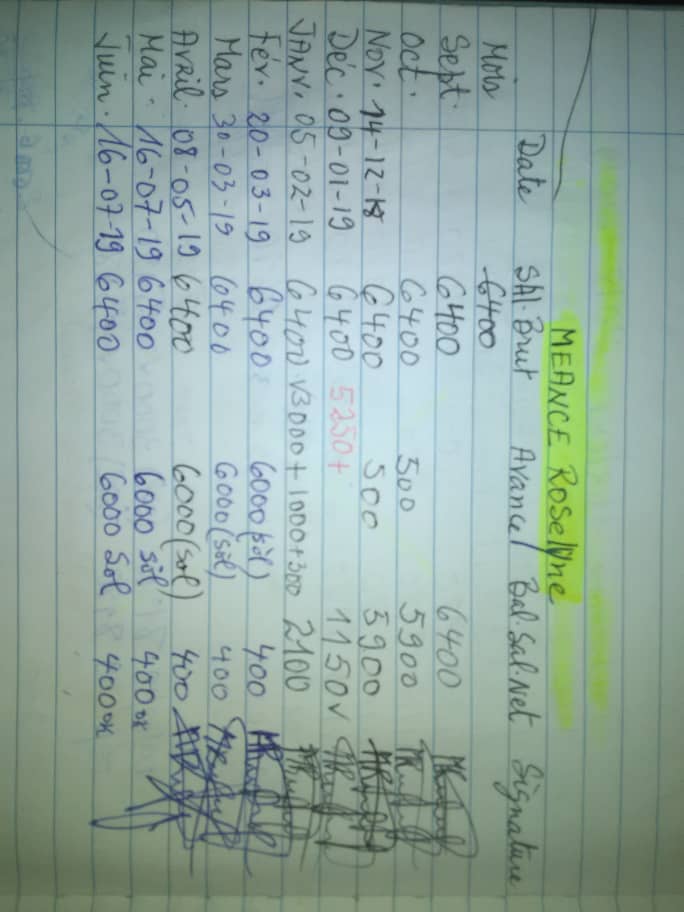 MEANCE Roselyne
Date Sal. Brut Avance Bal. Sal. Net Signature
Mois 6400
Sept. 6400 6400
Oct. 6400 500 5900
Nov. 14-12-18 6400 500 5900
Déc. 09-01-19 6400 5250+ 1150 v
JANV. 05-02-19 6400 v3000+1000+300 2100
Fév. 20-03-19 6400 6000 (sòl) 400
Mars 30-03-19 6400 6000 (sòl) 400
Avril. 08-05-19 6400 6000 (sol) 400
Mai. 16-07-19 6400 6000 sòl 400 ok
Juin. 16-07-19 6400 6000 Sol 400 ok